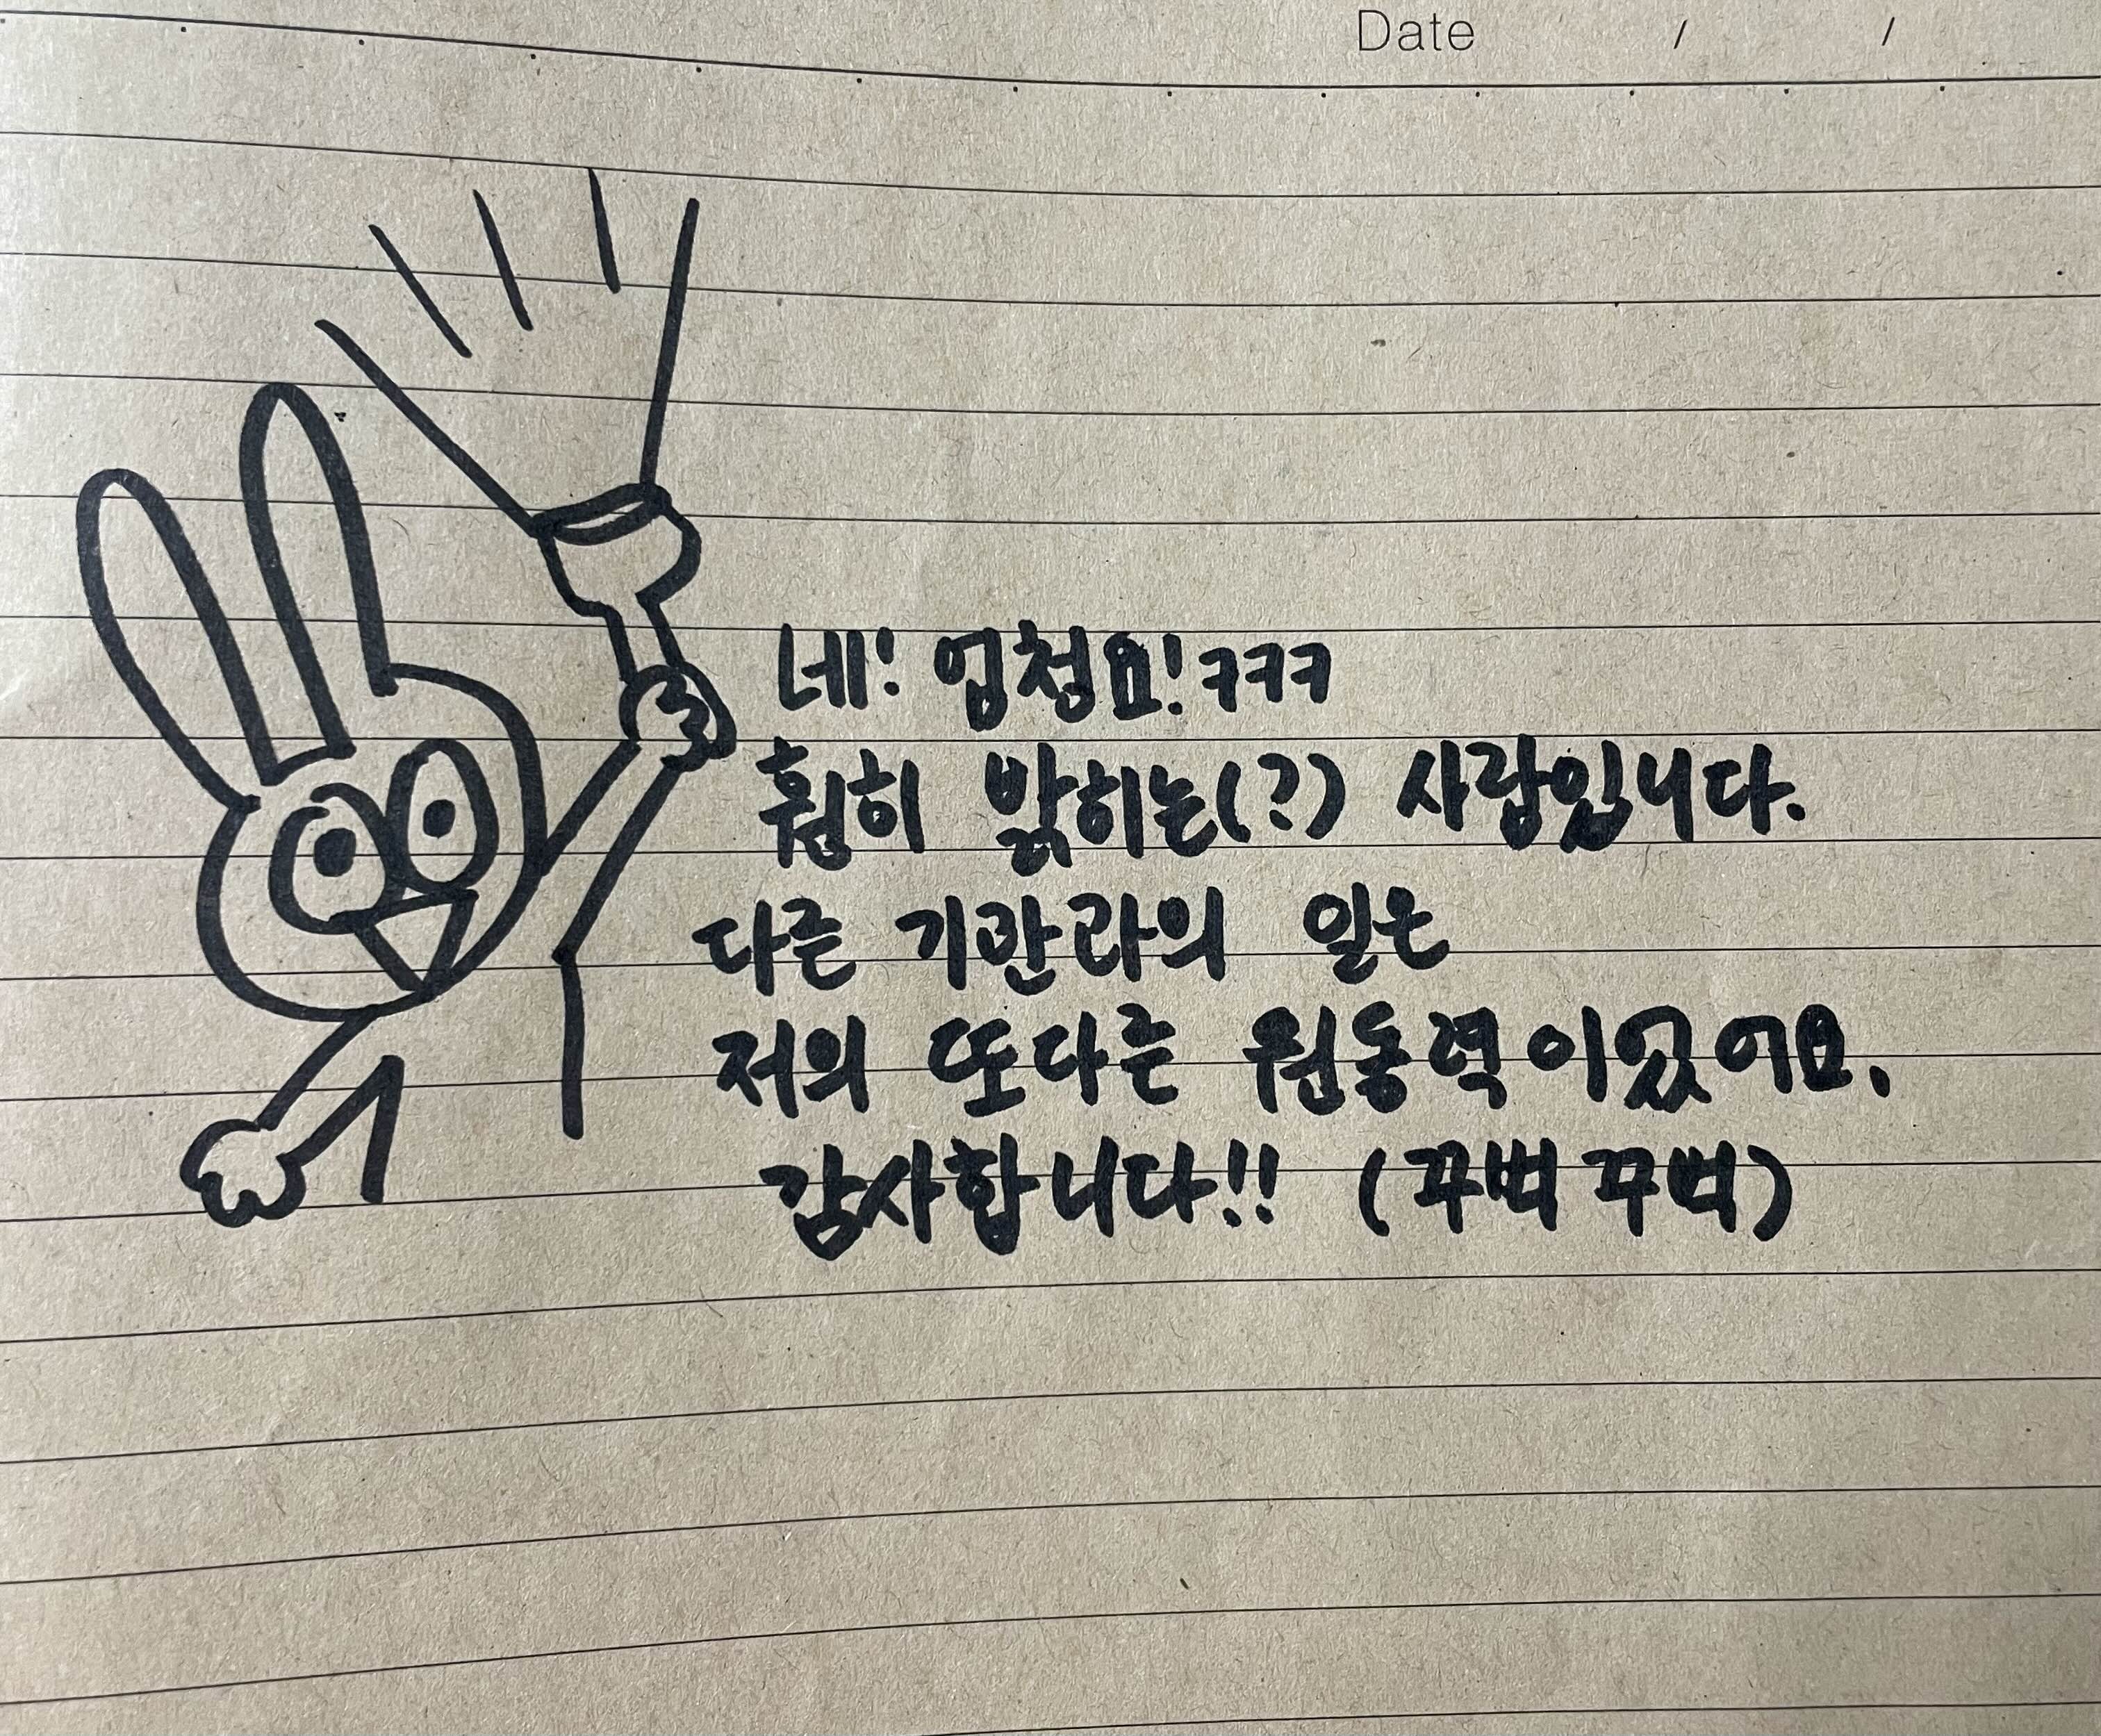 Date / /
네! 엄청요! ㅋㅋㅋ
훤히 밝히는(?) 사람입니다.
다른 기관과의 일은
저의 또다른 원동력이있어요.
감사합니다!! (꾸벅 꾸벅)